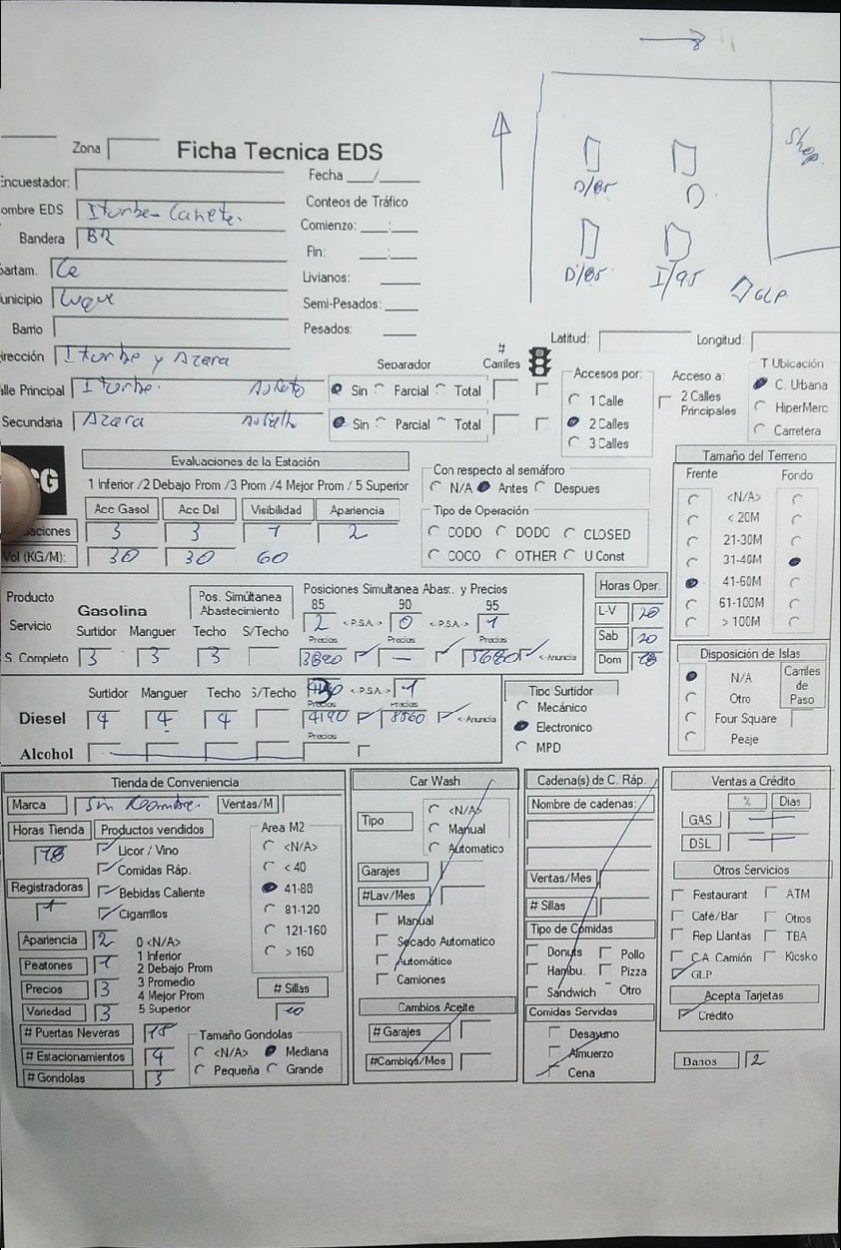 Zona
Ficha Tecnica EDS
Shop
D/85
D
D/85
I/95
GLP
Encuestador:
Fecha ___/___
ombre EDS Iturbe - Cañete.
Conteos de Tráfico
Bandera BR
Comienzo: __:__
Fin: __:__
partam. Ce
Livianos:
unicipio Luque
Semi-Pesados:
Barrio
Pesados:
Latitud: Longitud:
irección Iturbe y Azara
Separador # Carriles
alle Principal Iturbe. Sin Parcial Total
Secundaria Azara Sin Parcial Total
Accesos por:
1 Calle
2 Calles
3 Calles
Acceso a:
2 Calles Principales
T Ubicación
C. Urbana
HiperMerc
Carretera
CG
Evaluaciones de la Estación
1 Inferior /2 Debajo Prom /3 Prom /4 Mejor Prom / 5 Superior
Acc Gasol Acc Dsl Visibilidad Apariencia
aciones 3 3 1 2
Vol (KG/M): 30 30 60
Con respecto al semáforo
N/A Antes Despues
Tipo de Operación
CODO DODO CLOSED
COCO OTHER U Const
Tamaño del Terreno
Frente Fondo
<N/A>
< 20M
21-30M
31-40M
41-60M
61-100M
> 100M
Producto
Servicio
Gasolina
Pos. Simúltanea Abastecimiento
Posiciones Simultanea Abas. y Precios
85 90 95
2 < P.S.A.> 0 < P.S.A.> 1
Surtidor Manguer Techo S/Techo Precios Precios Precios
S. Completo 3 3 3 3890 — 5680 < Anuncia
Horas Oper.
L-V 20
Sab 20
Dom 18
Surtidor Manguer Techo S/Techo < P.S.A.> 1
Precios Precios
Diesel 4 4 4 4190 8560 < Anuncia
Precios
Alcohol
Tipo Surtidor
Mecánico
Electronico
MPD
Disposición de Islas
N/A
Otro
Four Square
Peaje
Carriles de Paso
Tienda de Conveniencia
Marca Sin Nombre. Ventas/M
Horas Tienda 18
Productos vendidos
Licor / Vino
Comidas Ráp.
Bebidas Caliente
Cigarrillos
Registradoras 1
Area M2
<N/A>
< 40
41-80
81-120
121-160
> 160
Apariencia 2
Peatones 1
Precios 3
Variedad 3
0 <N/A>
1 Inferior
2 Debajo Prom
3 Promedio
4 Mejor Prom
5 Superior
# Sillas
10
# Puertas Neveras 15
# Estacionamientos 4
# Gondolas 3
Tamaño Gondolas
<N/A> Mediana
Pequeña Grande
Car Wash
Tipo
<N/A>
Manual
Automatico
Garajes
#Lav/Mes
Manual
Secado Automatico
Automático
Camiones
Cambios Aceite
# Garajes
#Cambios/Mes
Cadena(s) de C. Ráp.
Nombre de cadenas:
Ventas/Mes
# Sillas
Tipo de Comidas
Donuts Pollo
Hambu. Pizza
Sandwich Otro
Comidas Servidas
Desayuno
Almuerzo
Cena
Ventas a Crédito
% Dias
GAS
DSL
Otros Servicios
Restaurant ATM
Café/Bar Otros
Rep Llantas TBA
C.A. Camión Kiosko
GLP
Acepta Tarjetas
Crédito
Banos 2